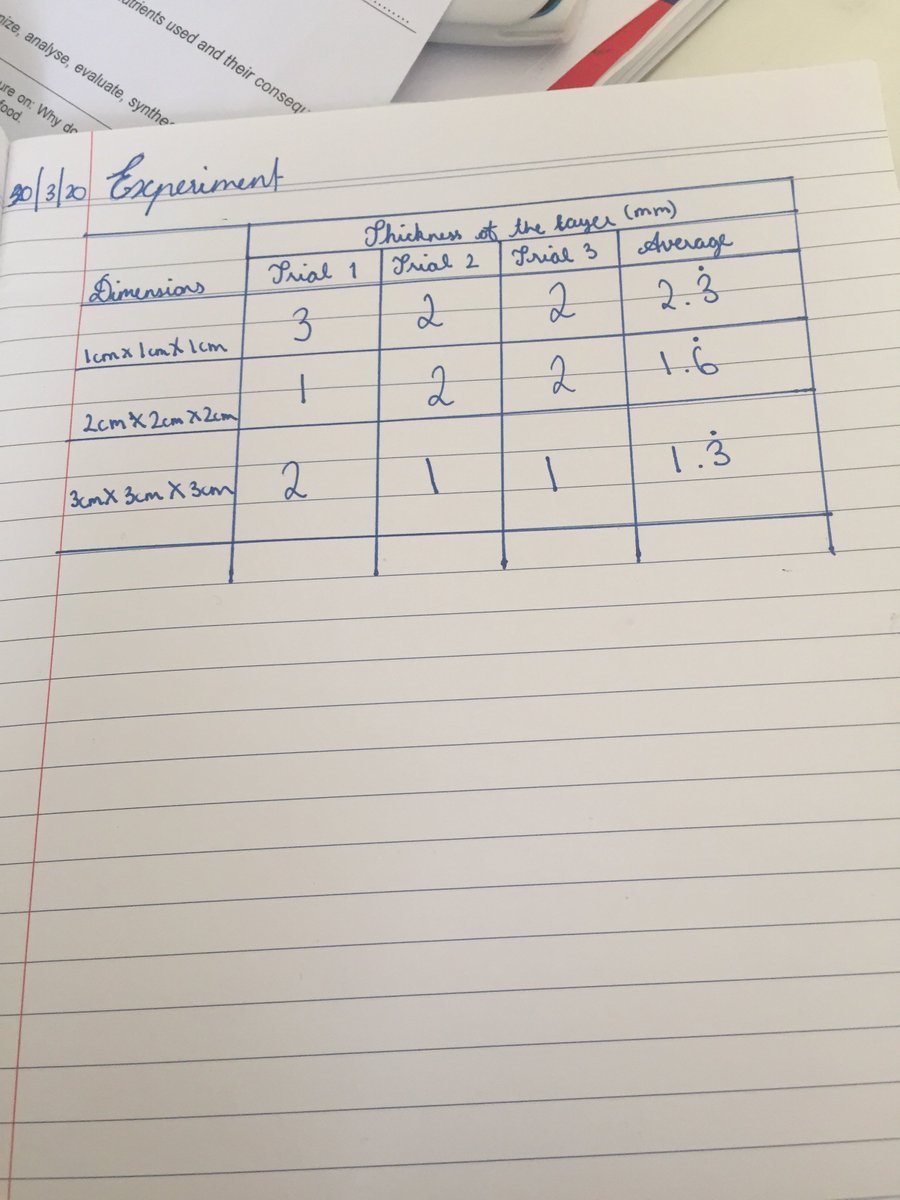 utrients used and their consequ
nize, analyse, evaluate, synthe
ure on: Why do
food.
30/3/20 Experiment
Thickness of the layer (mm)
Dimensions Trial 1 Trial 2 Trial 3 Average
1cm x 1cm x 1cm 3 2 2 2.3̇
2cm x 2cm x 2cm 1 2 2 1.6̇
3cm x 3cm x 3cm 2 1 1 1.3̇